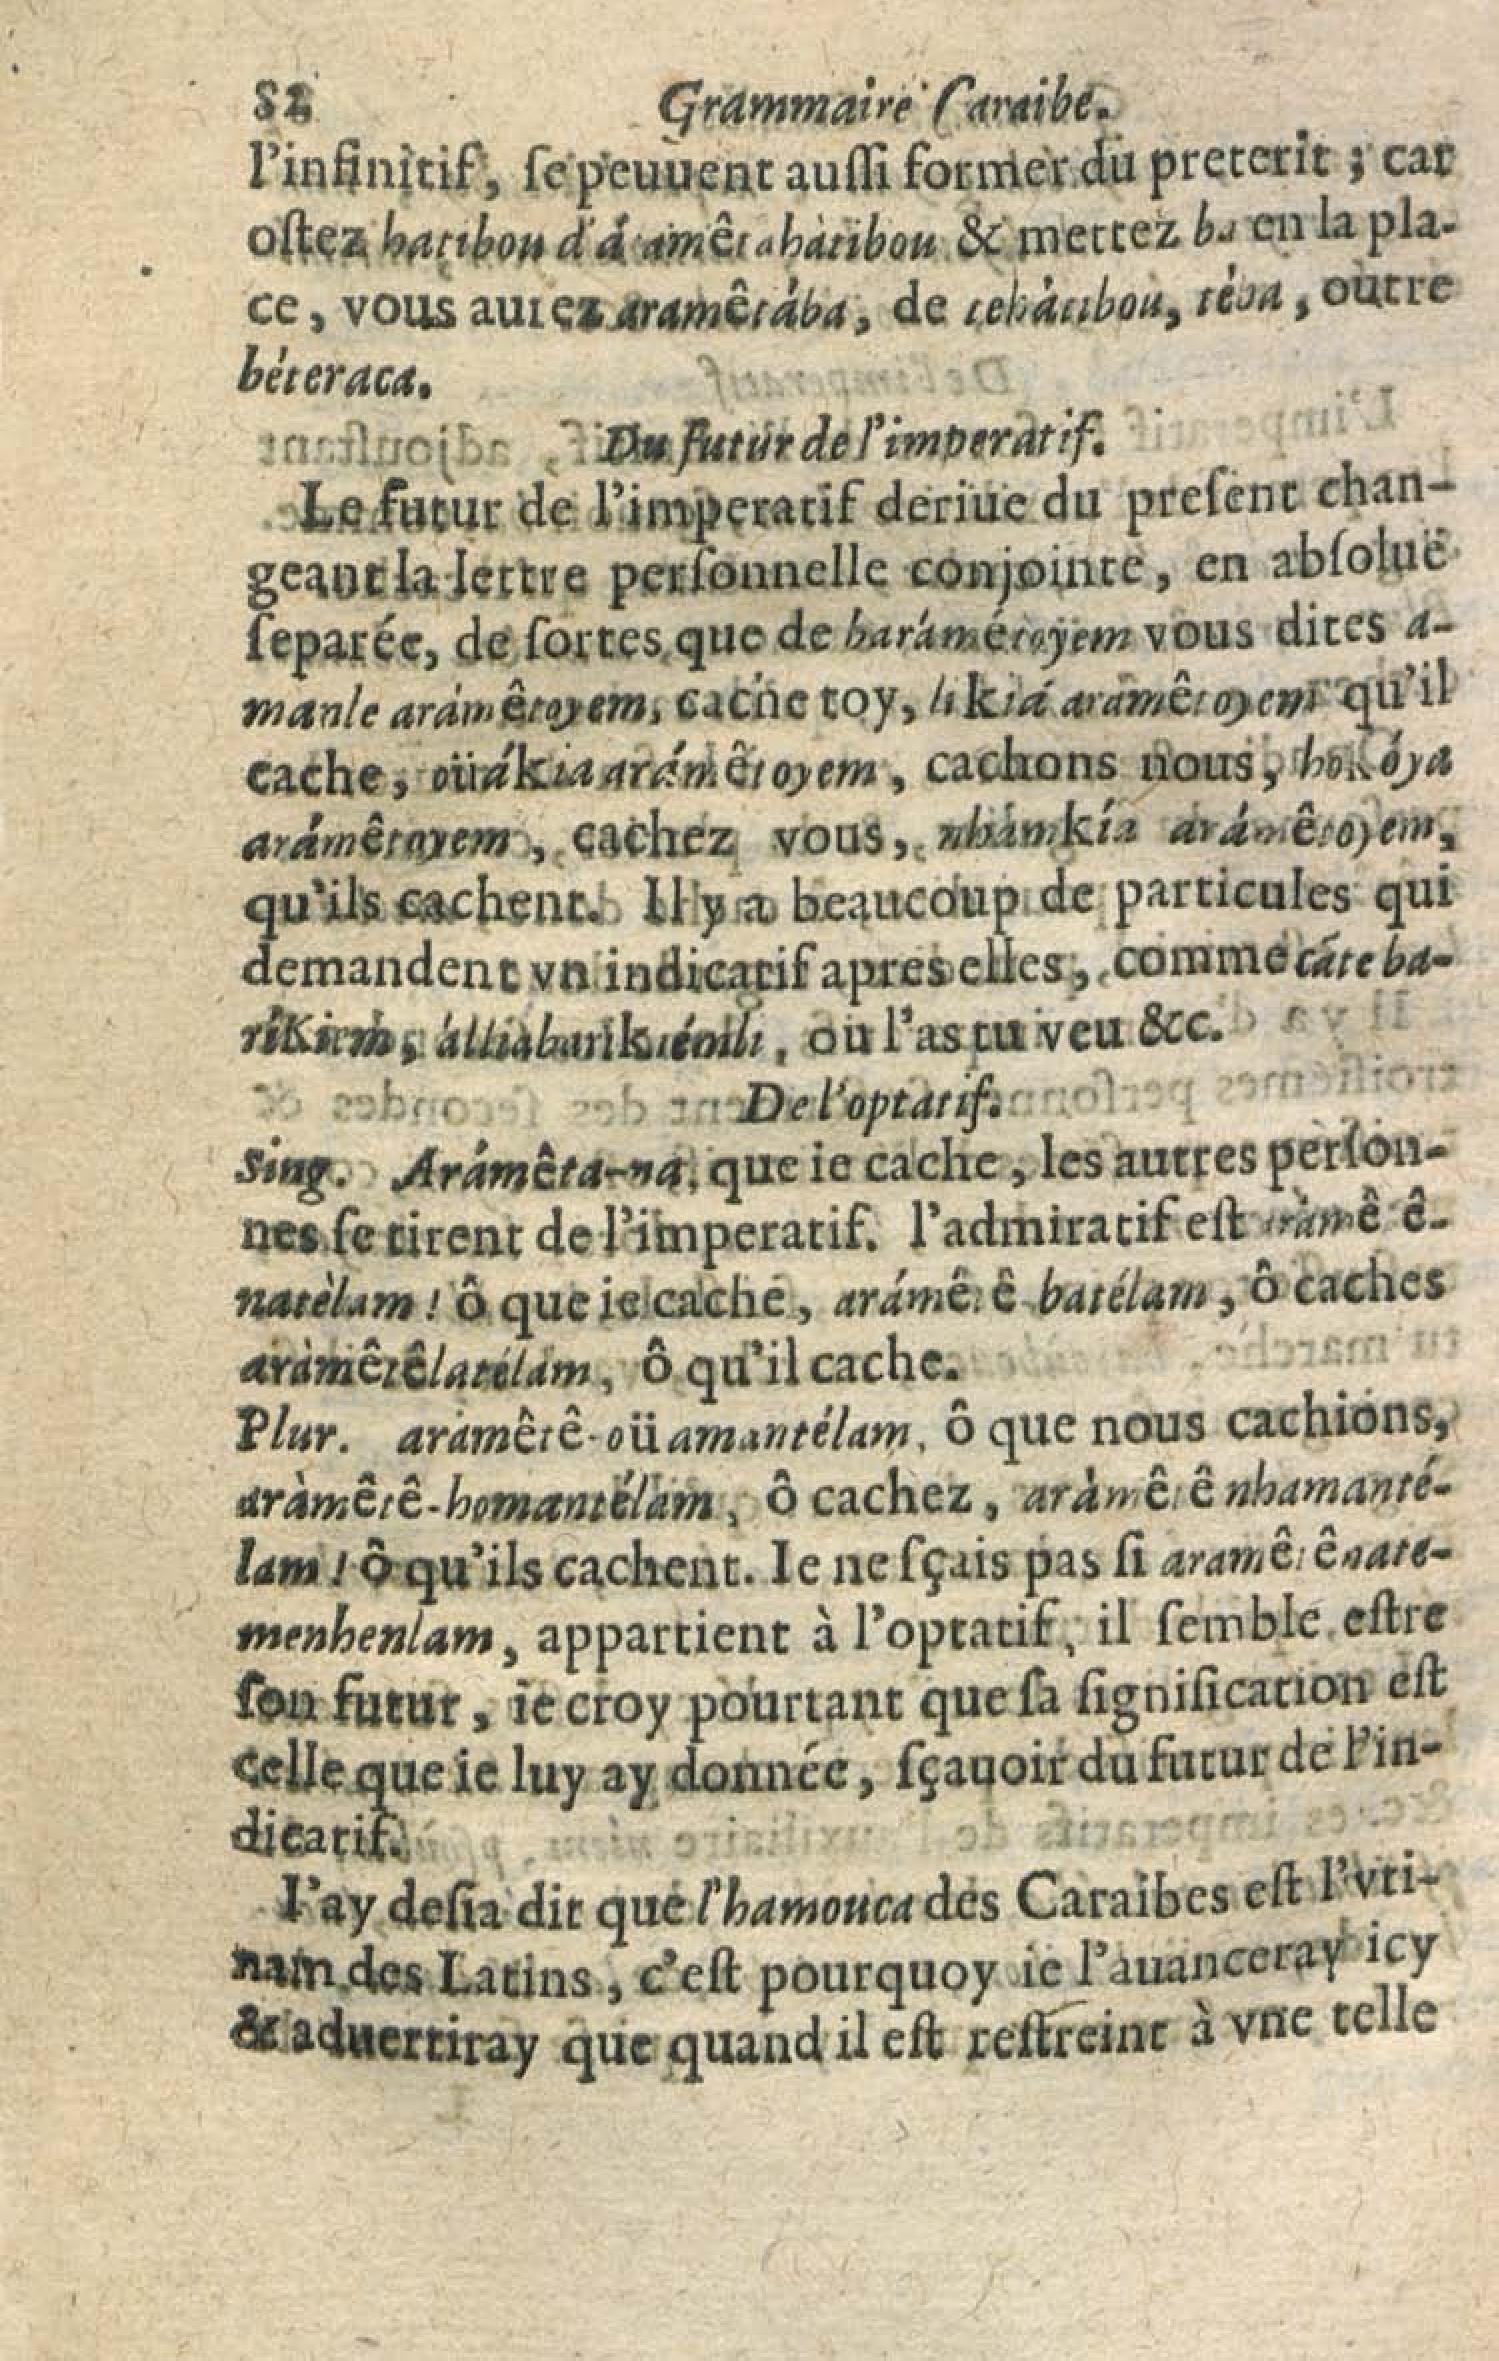 82 Grammaire Caraibe.
l'infinitif, ſe peuuent auſſi former du preterit ; car
oſtez hatibou d'á amêtahàtibou & mettez ba en la pla-
ce, vous aurez aramêtába, de tehátibou, téba, outre
béteraca.
Du futur de l'imperatif.
Le futur de l'imperatif deriue du preſent chan-
geant la lettre perſonnelle conjointe, en abſoluë
ſeparée, de ſortes que de barámétoyem vous dites a-
manle arámêtoyem, cache toy, likiá arámêtoyem qu'il
cache, oüákia arámêtoyem, cachons nous, hokóya
arámêtoyem, cachez vous, nhámkía arámêtoyem,
qu'ils cachent. Il y a beaucoup de particules qui
demandent vn indicatif apres elles, comme cáte ba-
ríkiem, álliabarikiémli, ou l'as tu veu &c.
De l'optatif.
Sing. Arámêta-na, que ie cache, les autres perſon-
nes ſe tirent de l'imperatif. l'admiratif eſt arámê ê-
natèlam ! ô que ie cache, arámêtê batélam, ô caches
aràmêtêlatélam, ô qu'il cache.
Plur. aramêtê-oüamantélam, ô que nous cachions,
aràmêtê-homantélam, ô cachez, aràmêtê nhamanté-
lam ! ô qu'ils cachent. Ie ne ſçais pas ſi aramêtênate-
menhenlam, appartient à l'optatif, il ſemble eſtre
ſon futur, ie croy pourtant que ſa ſignification eſt
celle que ie luy ay donnée, ſçauoir du futur de l'in-
dicatif.
I'ay deſia dit que l'hamouca des Caraibes eſt l'vti-
nam des Latins, c'eſt pourquoy ie l'auanceray icy
& aduertiray que quand il eſt reſtreint à vne telle